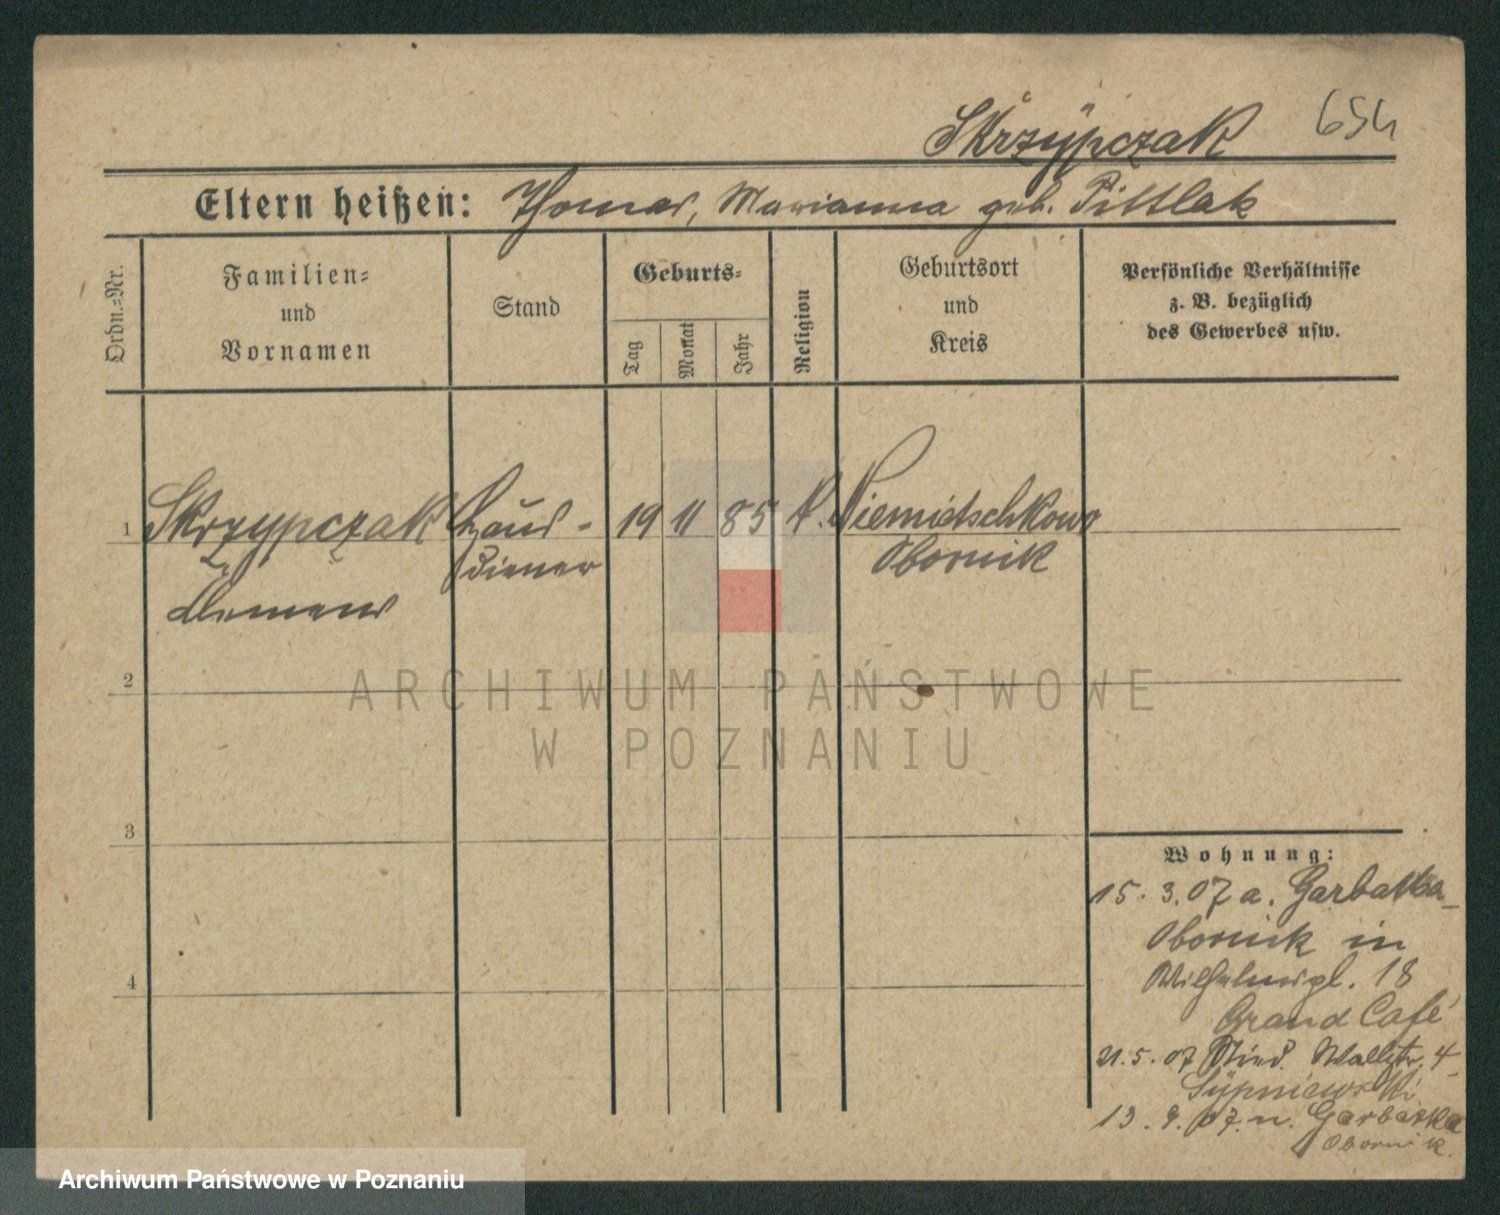 Skrzypczak 654
Eltern heißen: Thomas, Marianna geb. Pittlak
Ordn.=Nr.
Familien=
und
Vornamen
Stand
Geburts=
Tag
Monat
Jahr
Religion
Geburtsort
und
Kreis
Persönliche Verhältnisse
z. B. bezüglich
des Gewerbes usw.
1 Skrzypczak Haus- 19 11 85 K. Niemietschkowo
diener Obornik
Clemens
2
3
4
Wohnung:
15. 3. 07 a. Garbatka
Obornik in
Wilhelmspl. 18
Grand Café
21. 5. 07 Wallstr. 4
Sypniewski
13. 9. 07. n. Garbatka
Obornik.
ARCHIWUM PAŃSTWOWE
W POZNANIU
Archiwum Państwowe w Poznaniu